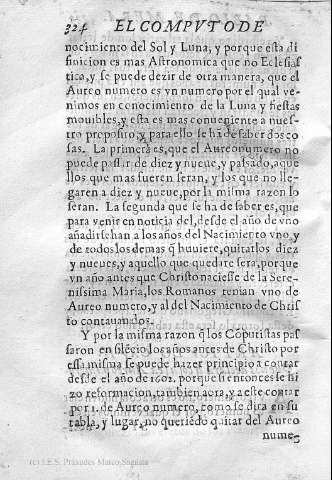 324 EL COMPVTO DE
nocimiento del Sol y Luna, y porque esta di
finicion es mas Astronomica que no Eclesias
tica, y se puede dezir de otra manera, que el
Aureo numero es vn numero por el qual ve-
nimos en conocimiento de la Luna y fiestas
mouibles, y esta es mas conueniente a nues-
tro proposito, y para ello se hã de saber dos co
sas. La primera es, que el Aureo numero no
puede passar de diez y nueue, y passado, aque
llos que mas fueren seran, y los que no lle-
garen a diez y nueue, por la misma razon lo
seran. La segunda que se ha de saber es, que
para venir en noticia del, desde el año de vno
añadirse han a los años del Nacimiento vno, y
de todos los demas q̃ huuiere, quitarlos diez
y nueues, y aquello que quedare sera, porque
vn año antes que Christo naciesse de la Sere-
nissima Maria, los Romanos tenian vno de
Aureo numero, y al del Nacimiento de Chris
to contauan dos.
Y por la misma razon q̃ los Cõputistas pas
saron en silẽcio los años antes de Christo por
essa misma se puede hazer principio a contar
desde el año de 1602. porque si entonces se hi
zo reformacion, tambien aera, y a este contar
por 1. de Aureo numero, como se dira en su
tabla, y lugar, no queriẽdo quitar del Aureo
nume-
(c) I.E.S. Práxedes Mateo Sagasta